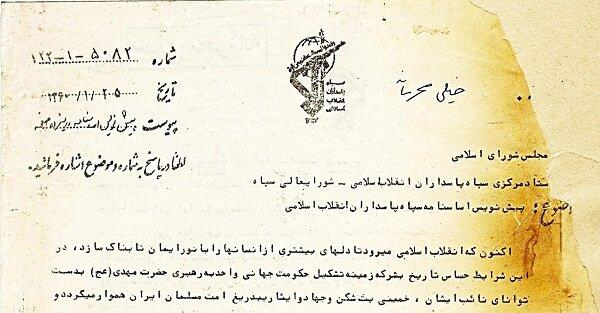 شماره ۵۰۸۲-۱-۱۳۲
تاریخ ۱۳۶۰/۱/۲۰۵
پیوست پیش نویس اساسنامه
خیلی محرمانه
لطفا در پاسخ به شماره و موضوع اشاره فرمائید.
سپاه
پاسداران
انقلاب
اسلامی
مجلس شورای اسلامی
ستاد مرکزی سپاه پاسداران انقلاب اسلامی - شورایعالی سپاه
موضوع: پیش نویس اساسنامه سپاه پاسداران انقلاب اسلامی
اکنون که انقلاب اسلامی میرود تا دلهای بیشتری از انسانها را با نور ایمان تابناک سازد، در
این شرایط حساس تاریخ بشر که زمینه تشکیل حکومت جهانی واحد به رهبری حضرت مهدی (عج) بدست
توانای نائب ایشان، خمینی بت شکن و جهاد و ایثار بیدریغ امت مسلمان ایران هموار میگردد و